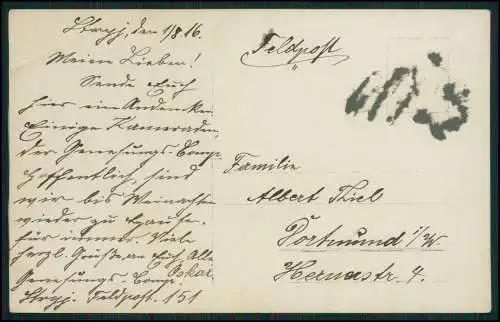 Stryj, den 1/8 16.
Meine Lieben!
Sende Euch
hier ein Andenken.
Einige Kameraden
der Genesungs-Comp.
Hoffentlich, sind
wir bis Weinachten
wieder zu Hause.
für immer. Viele
herzl. Grüße, an Euch Alle
Oskar.
Genesungs-Comp.
Stryj. Feldpost. 151
Feldpost
Familie
Albert Thiel
Dortmund i/W.
Hernerstr 4.